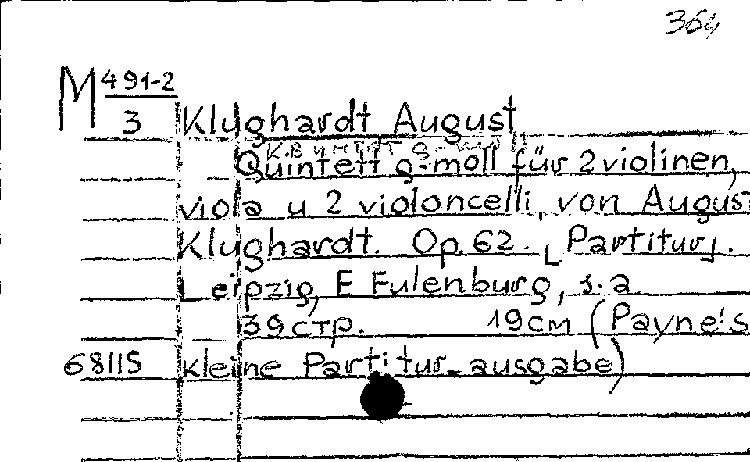 364
M 491-2
3 Klughardt August
Quintett g-moll für 2 violinen,
viola u 2 violoncelli, von August
Klughardt. Op. 62. [Partitur].
Leipzig, E Eulenburg, s. a.
39 стр. 19 см (Payne's
68115 kleine Partitur-ausgabe)